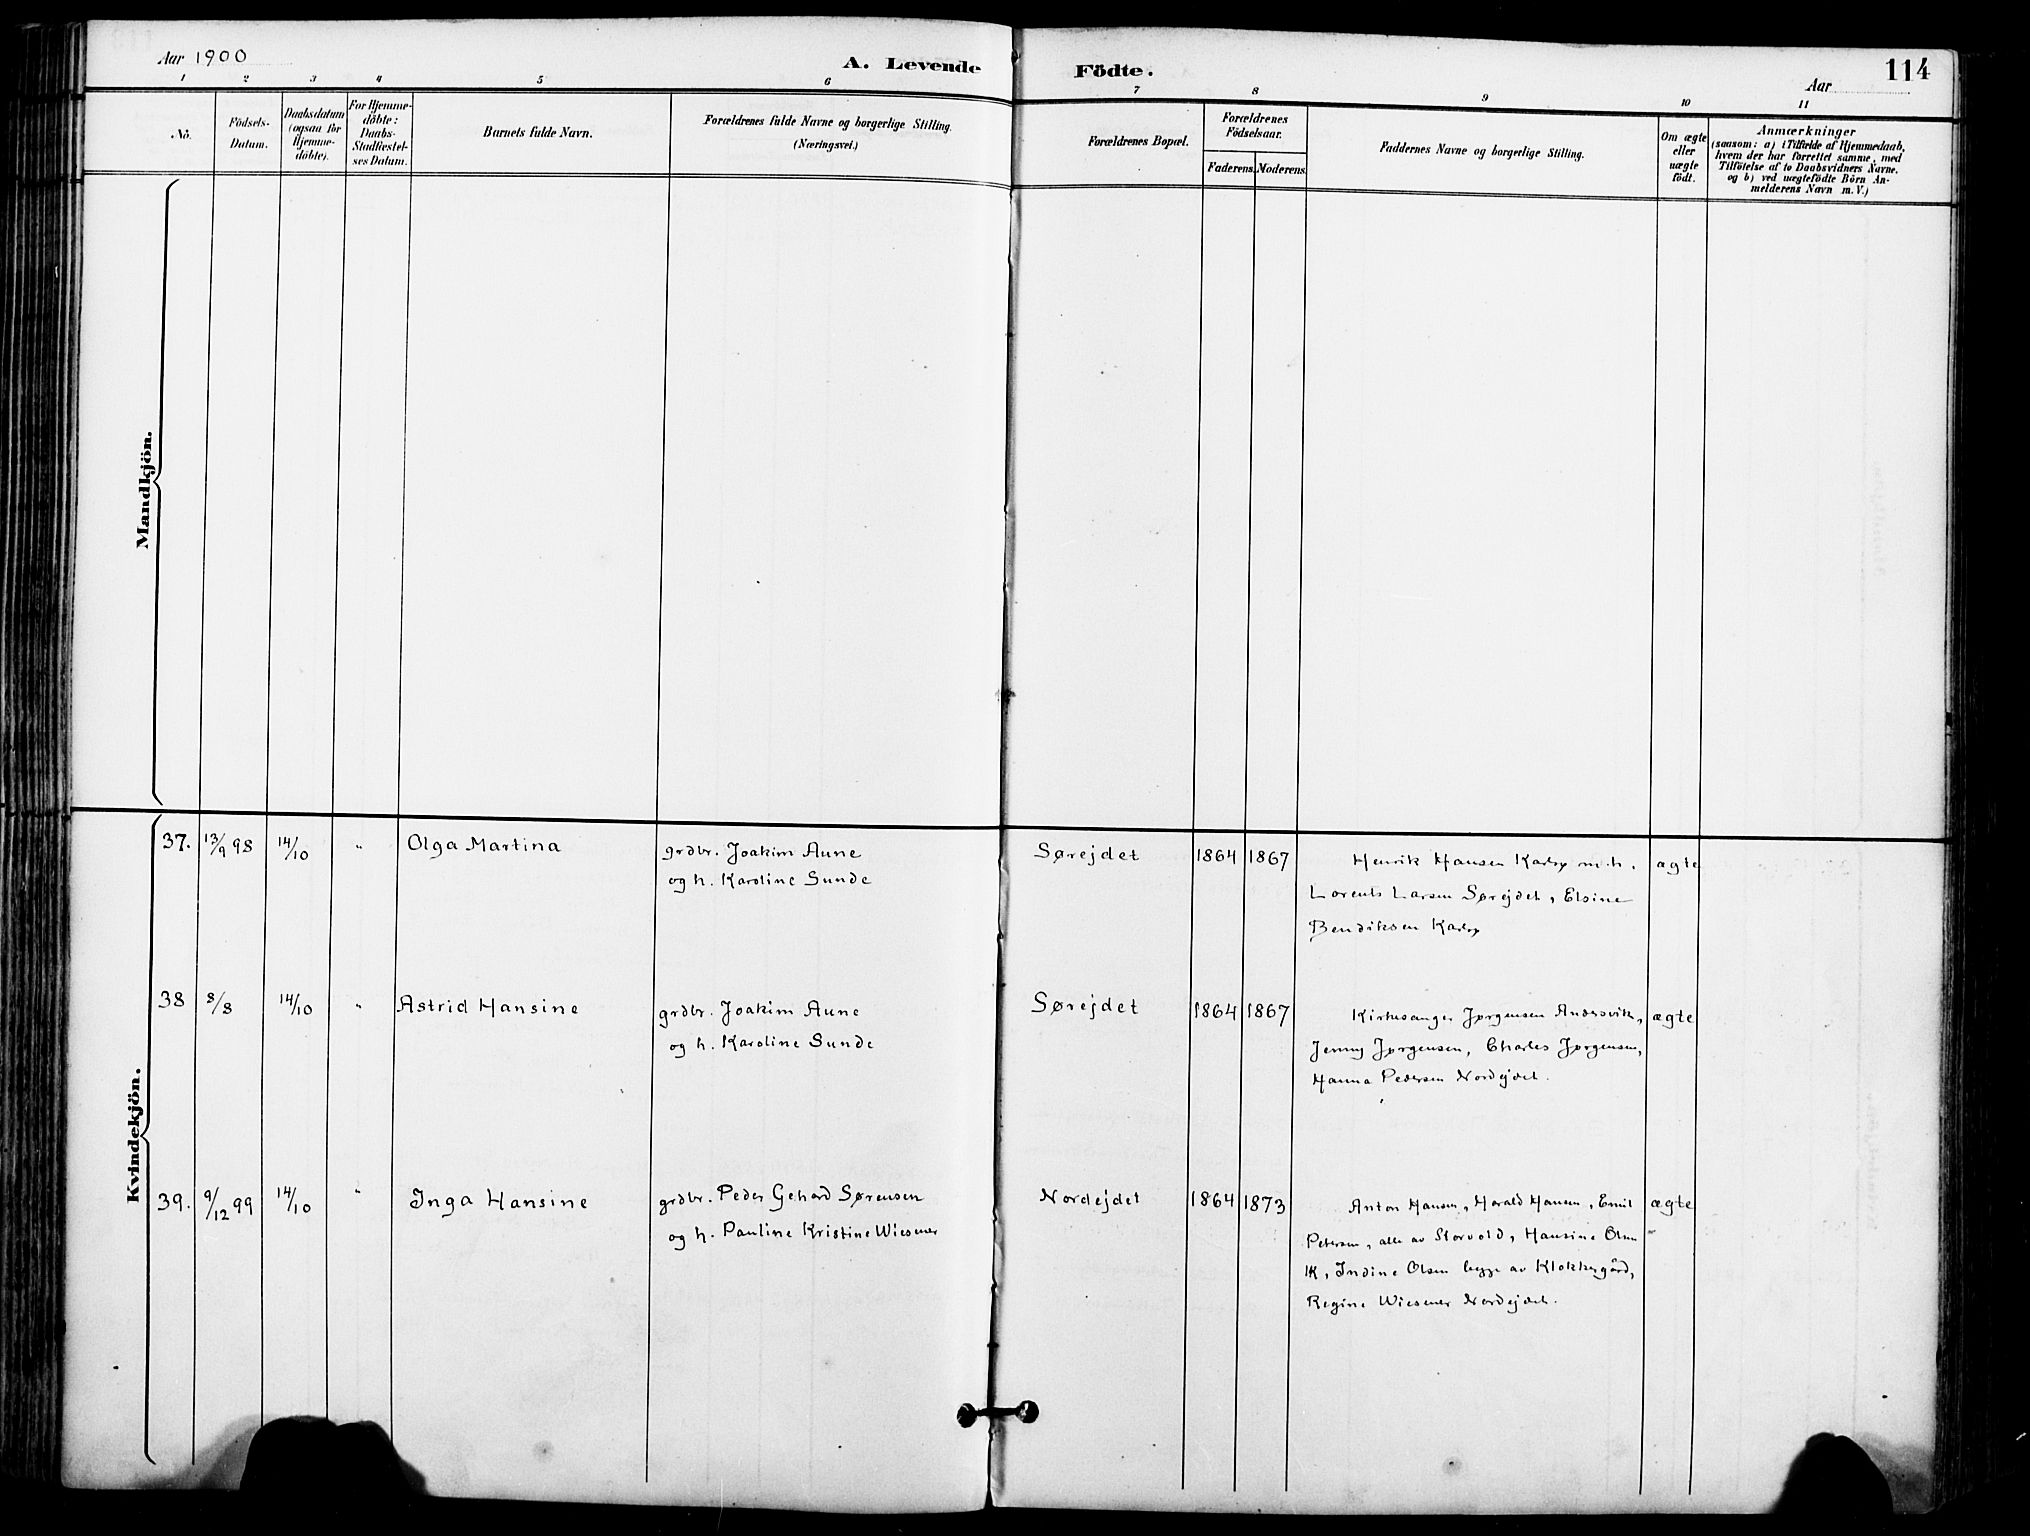 Aar 1900
A. Levende
Födte.
Aar
114
1 2 3 4 5 6 7 8 9 10 11
No.
Födsels-
Datum.
Daabsdatum
(ogsaa for
Hjemme-
döbte).
For Hjemme-
döbte:
Daabs-
Stadfæstel-
ses Datum.
Barnets fulde Navn.
Forældrenes fulde Navne og borgerlige Stilling.
(Næringsvei.)
Forældrenes Bopæl.
Forældrenes
Födselsaar.
Faderens. Moderens.
Faddernes Navne og borgerlige Stilling.
Om ægte
eller
uægte
födt.
Anmærkninger
(saasom: a) i Tilfælde af Hjemmedaab,
hvem der har forrettet samme, med
Tilföielse af to Daabsvidners Navne.
og b) ved uægtefödte Börn An-
melderens Navn m. V.)
Mandkjön.
Kvindekjön.
37. 13/9 98 14/10 " Olga Martina
grdbr. Joakim Aune
og h. Karoline Sunde
Sørejdet 1864 1867
Henrik Hansen Karlsø m. h.
Lorents Larsen Sørejdet, Elsine
Bendiksen Karlsø
ægte
38 8/8 14/10 " Astrid Hansine
grdbr. Joakim Aune
og h. Karoline Sunde
Sørejdet 1864 1867
Kirkesanger Jørgensen Andersvik,
Jenny Jørgensen, Charles Jørgensen,
Hanna Pedersen Nordejdet.
ægte
39. 9/12 99 14/10 " Inga Hansine
grdbr. Peder Gehard Sørensen
og h. Pauline Kristine Wiesener
Nordejdet 1864 1873
Anton Hansen, Harald Hansen, Emil
Petersen, alle av Storvold, Hansine Olsen
IK, Indine Olsen begge av Klokkergård,
Regine Wiesener Nordejdet.
ægte